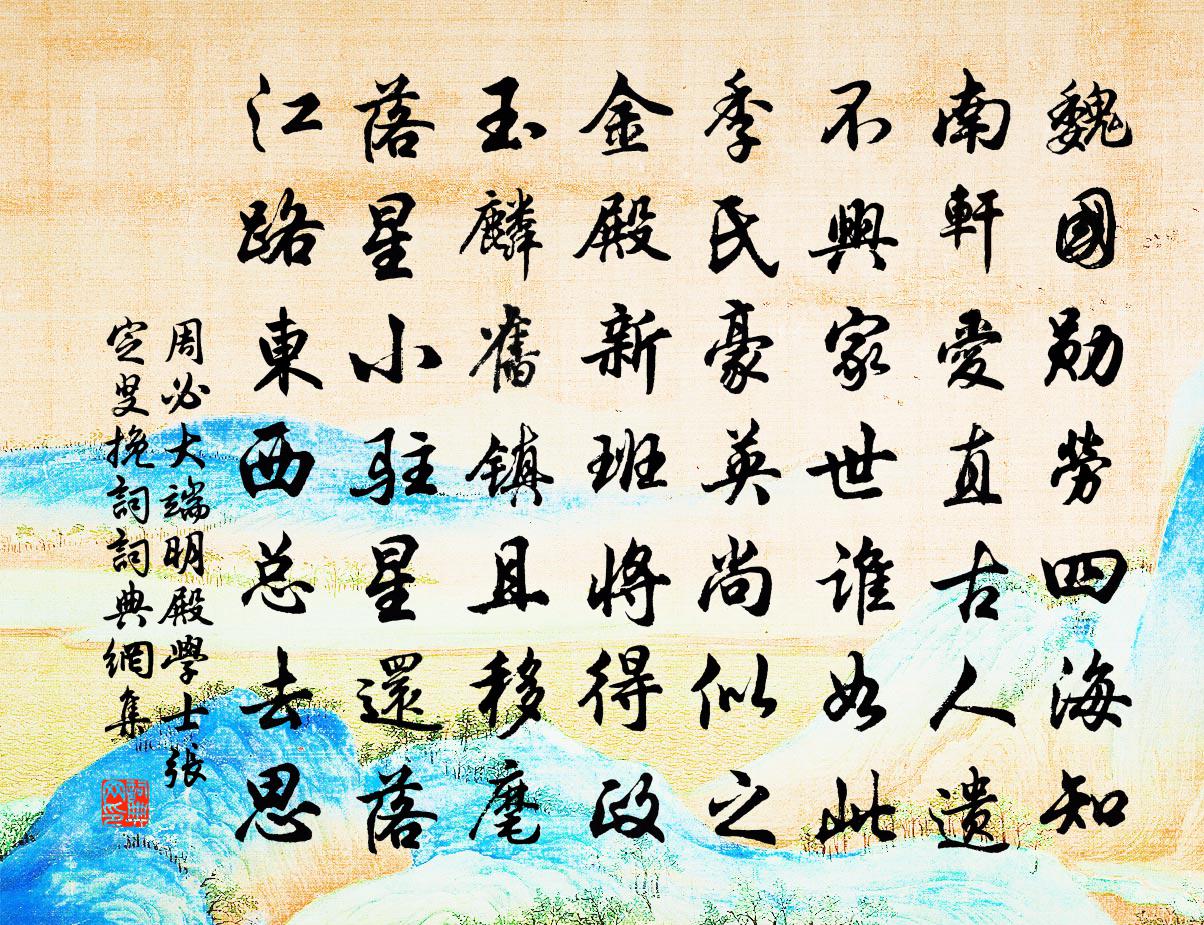 魏國勛勞四海知
南軒愛直古人遺
不興家世誰如此
季氏豪英尚似之
金殿新班將得政
玉麟舊鎮且移麾
落星小駐星還落
江路東西总去思
周必大端明殿學士張
定叟挽詞詞典網集